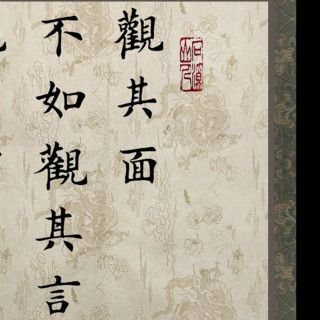 觀其面
不如觀其言